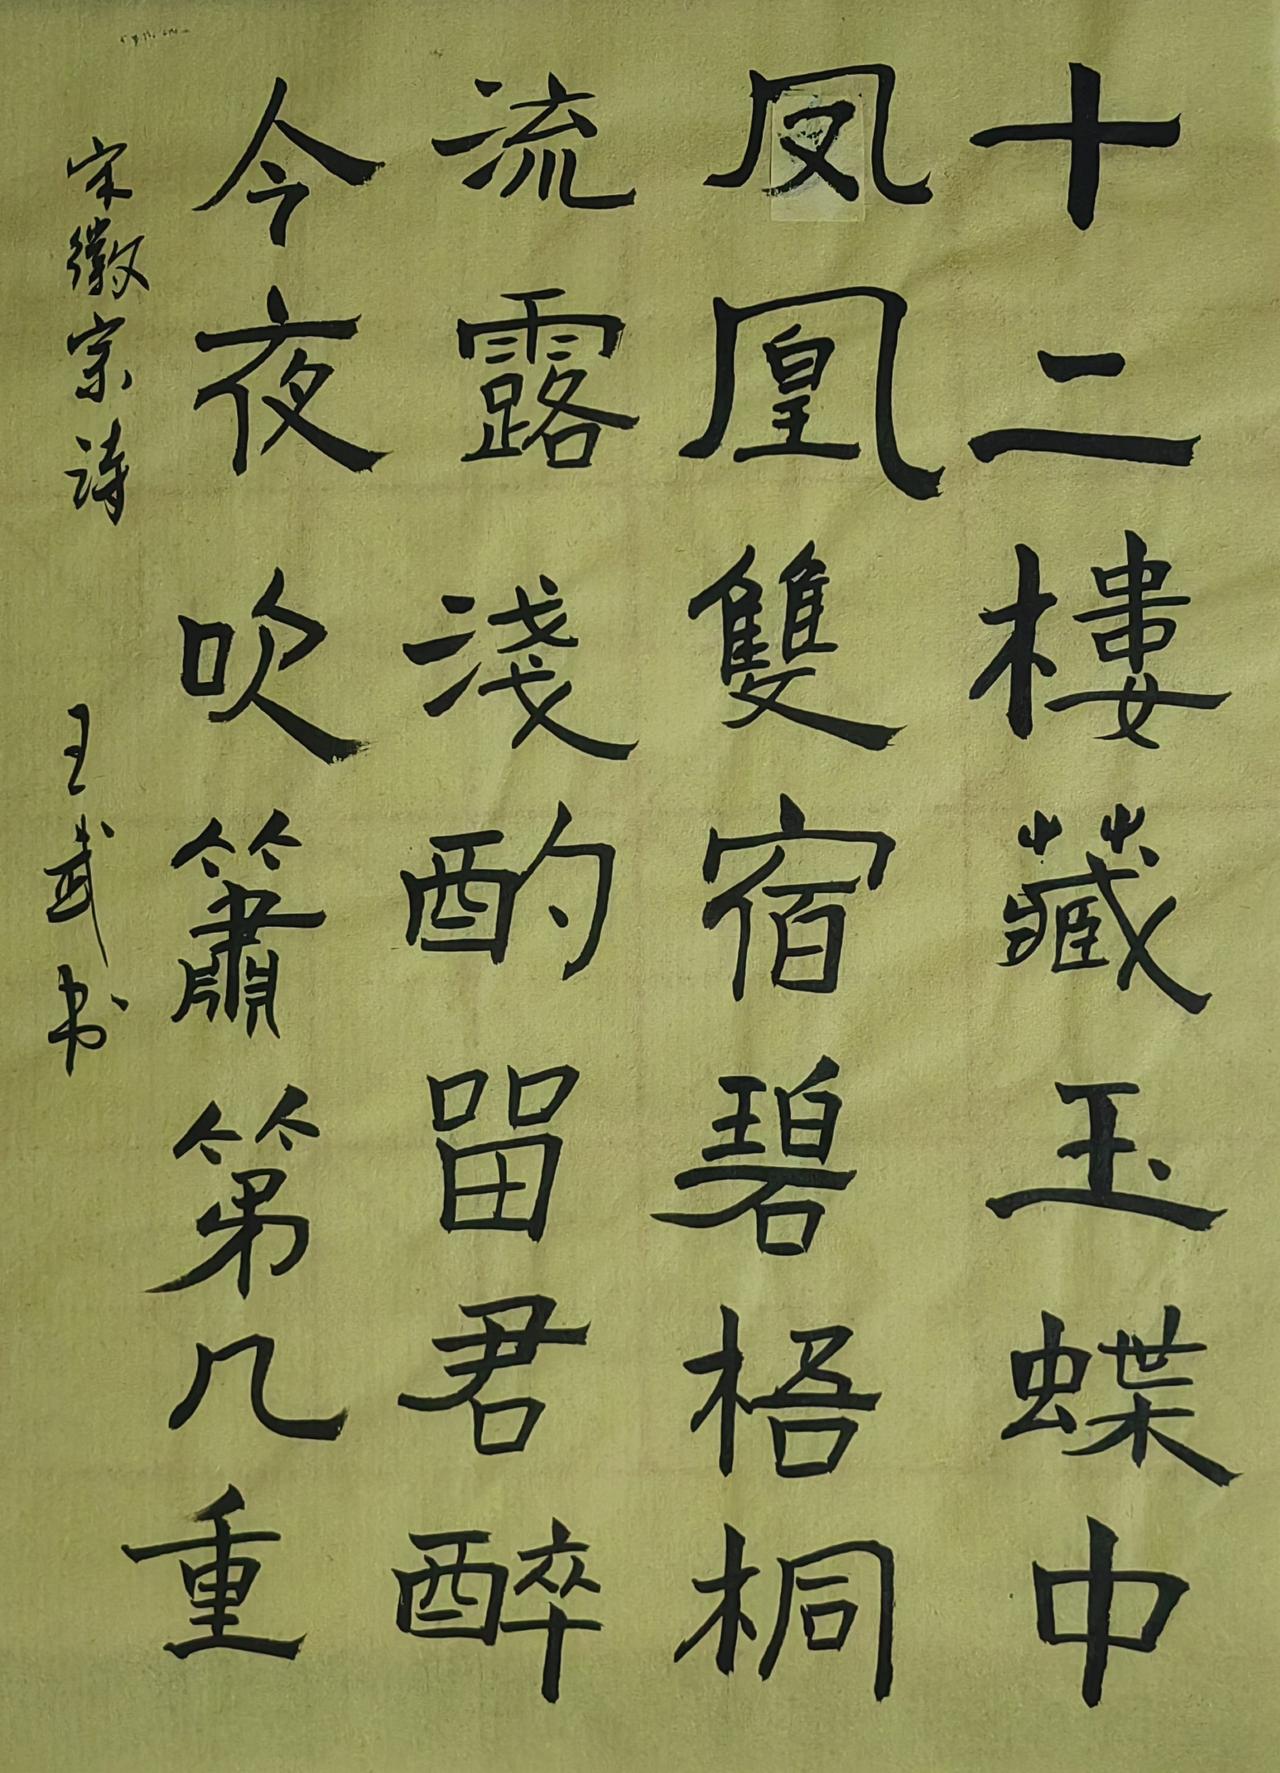 十二樓藏玉蝶中
凤凰雙宿碧梧桐
流露淺酌留君醉
今夜吹簫第几重
宋徽宗诗 王武书